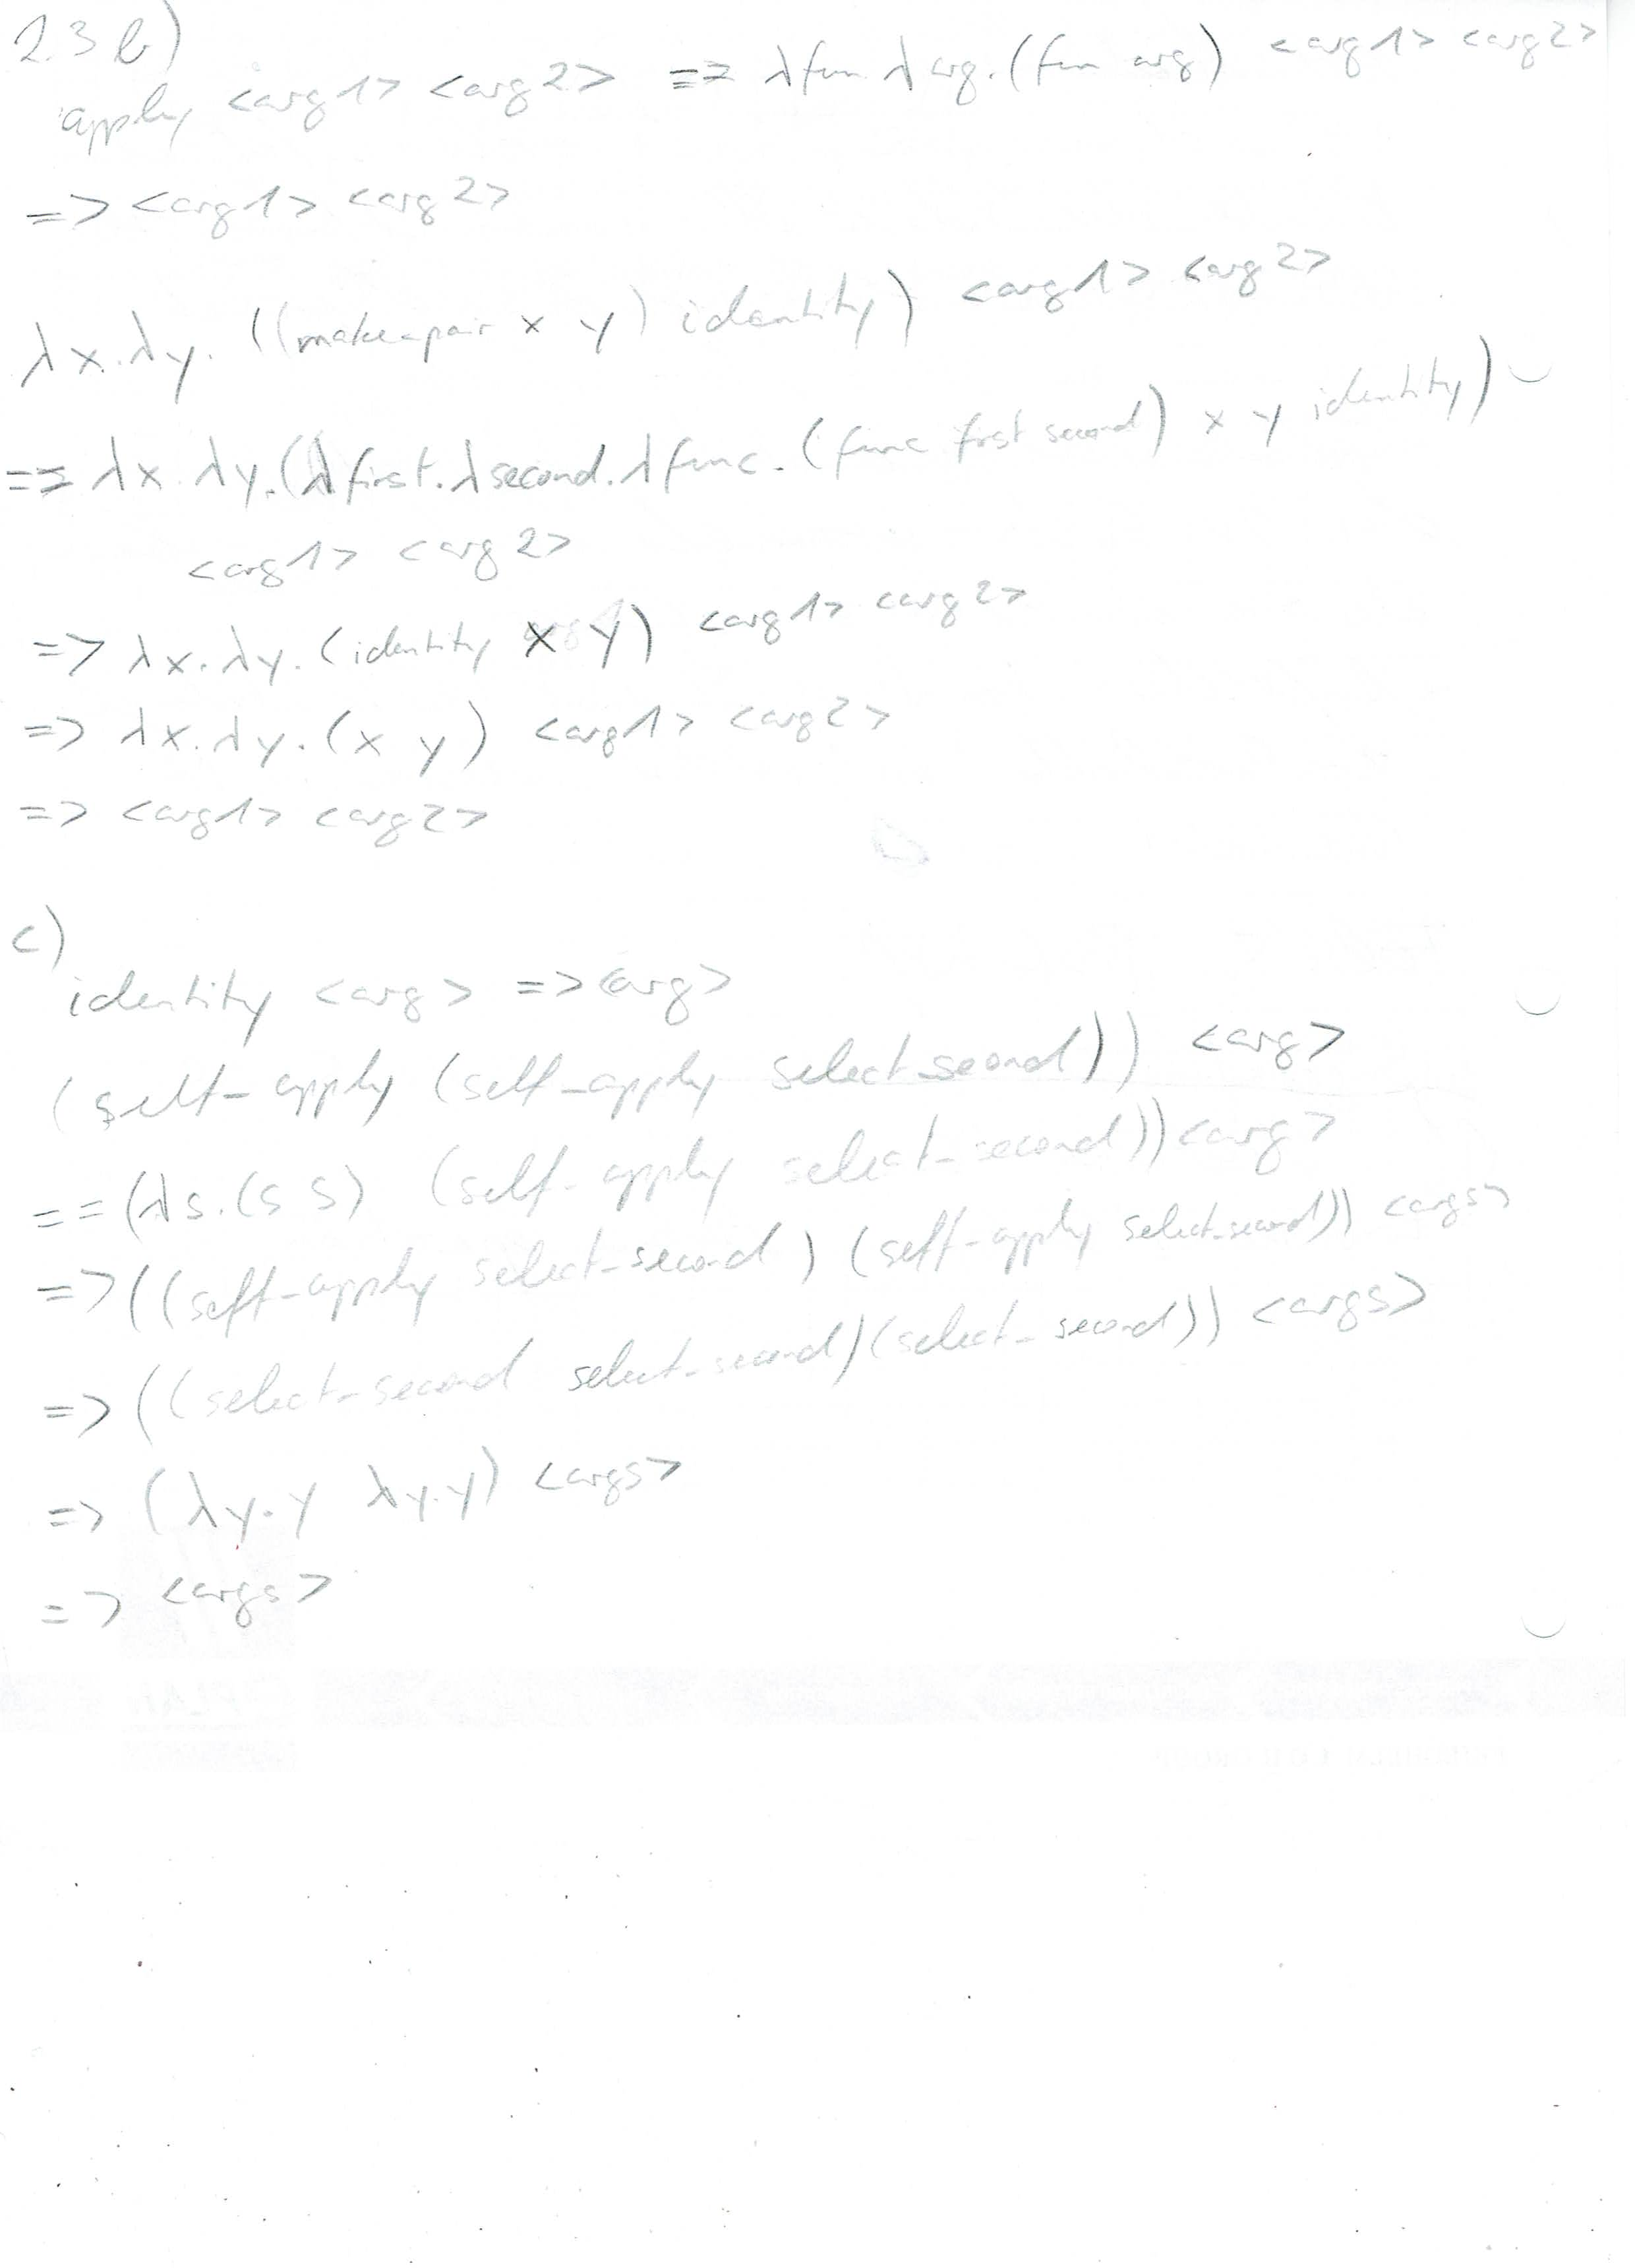 2.3 b)
apply <arg1> <arg2> => λfun.λarg.(fun arg) <arg1> <arg2>
=> <arg1> <arg2>
λx.λy.((make-pair x y) identity) <arg1> <arg2>
== λx.λy.(λfirst.λsecond.λfunc.(func first second) x y identity)
<arg1> <arg2>
=> λx.λy.(identity x y) <arg1> <arg2>
=> λx.λy.(x y) <arg1> <arg2>
=> <arg1> <arg2>
c)
identity <arg> => <arg>
(self-apply (self_apply select_second)) <arg>
== (λs.(s s) (self-apply select-second)) <arg>
=> ((self-apply select-second) (self-apply select-second)) <args>
=> ((select-second select-second)(select-second)) <args>
=> (λy.y λy.y) <args>
=> <args>